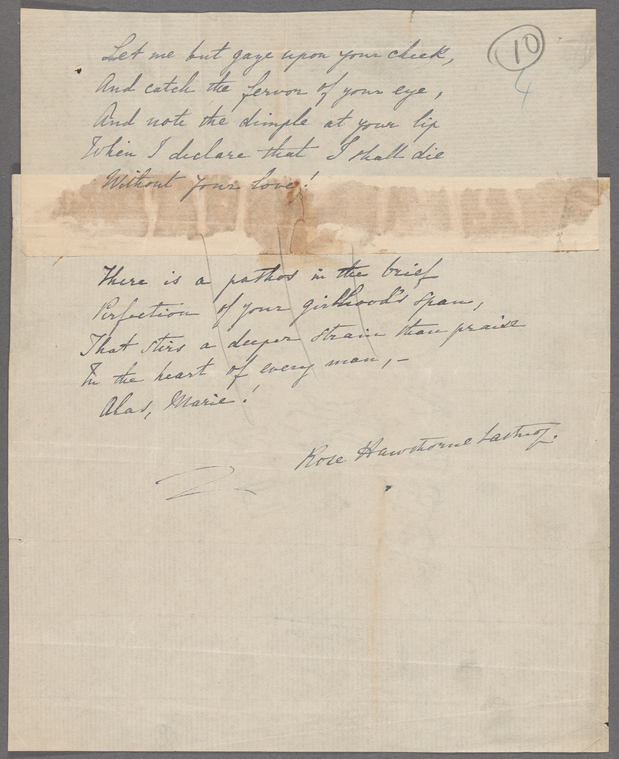 10
4
Let me but gaze upon your cheek,
And catch the fervor of your eye,
And note the dimple at your lip
When I declare that I shall die
Without your love!
There is a pathos in the brief
Perfection of your girlhood's span,
That stirs a deeper strain than praise
In the heart of every man, –
Alas, Marie!
Rose Hawthorne Lathrop.